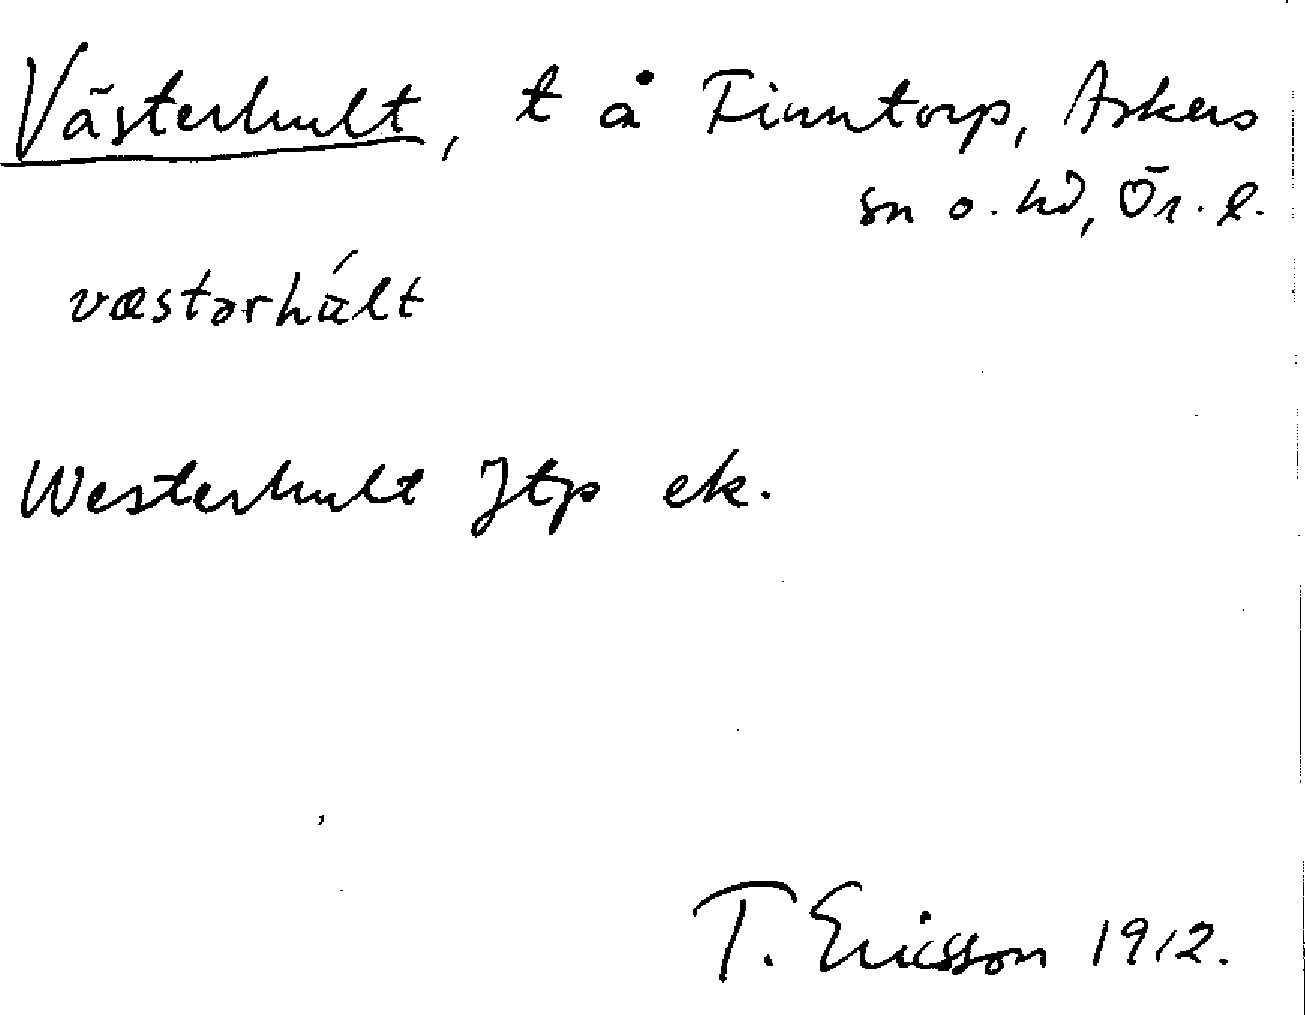 Västerhult, t å Finntorp, Askers
sn o. hd, Ör. l.
væstərhúlt
Westerhult Jtp ek.
T. Ericsson 1912.